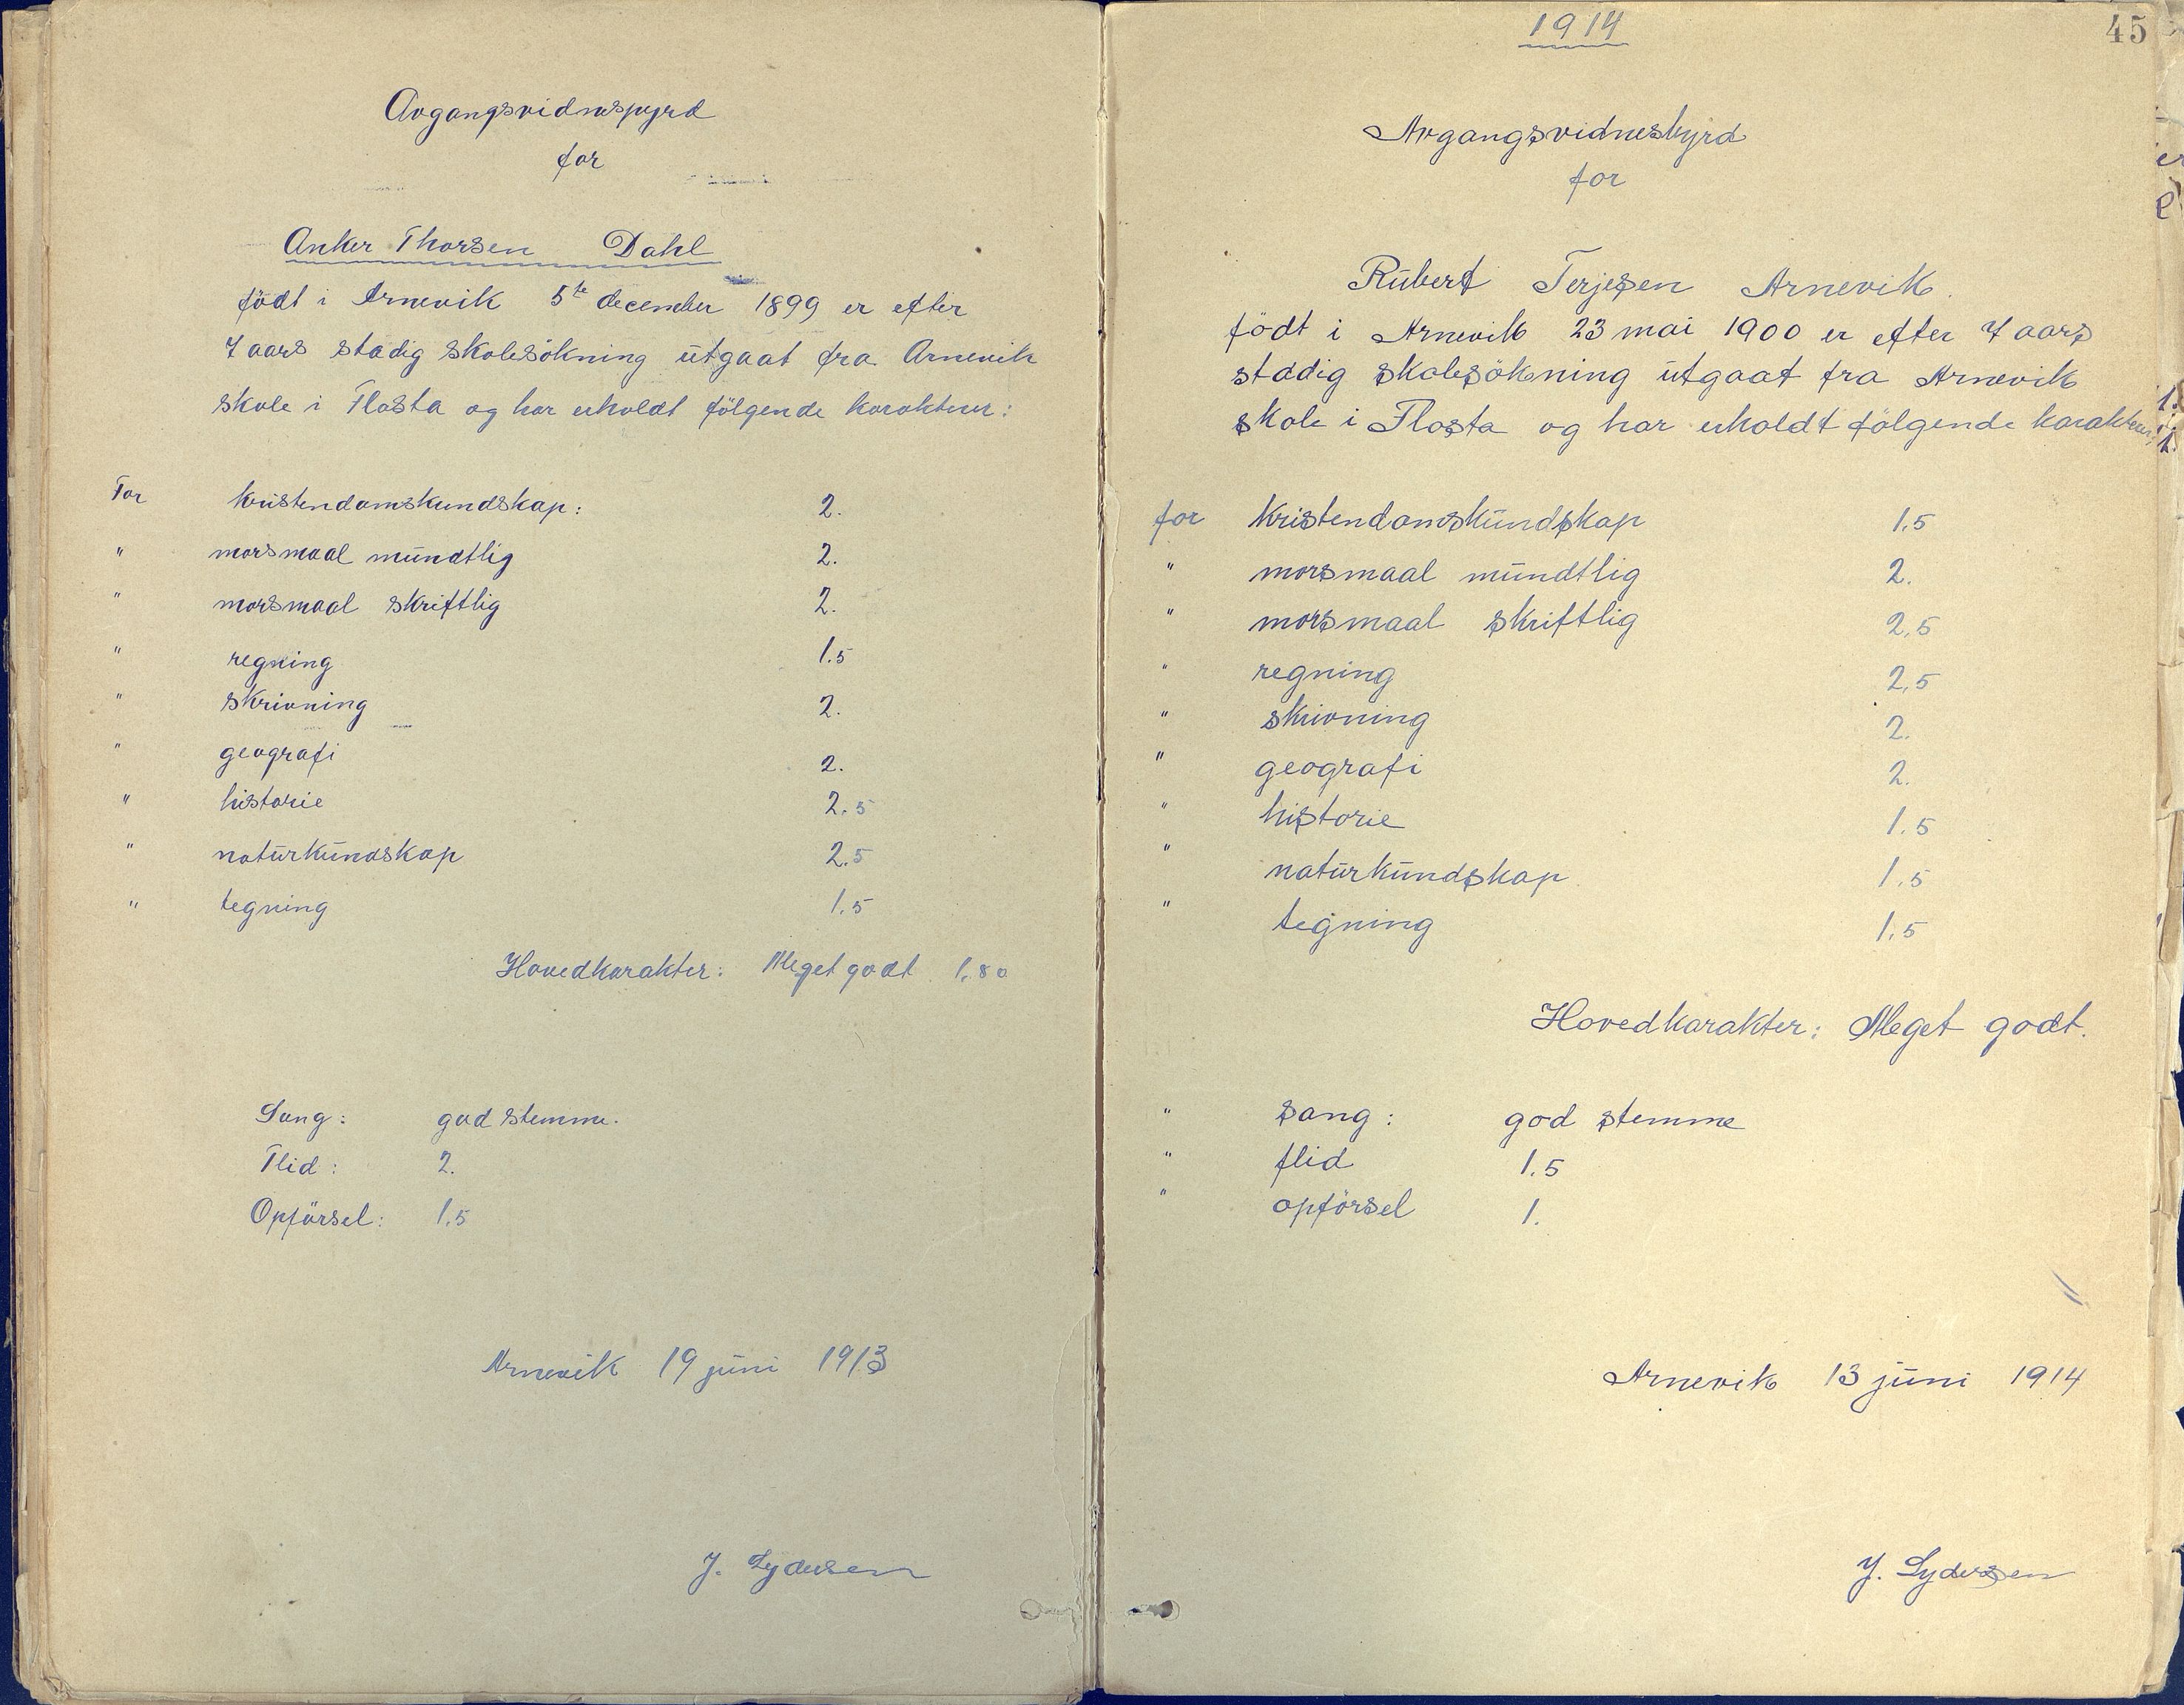 Avgangsvidnespyrd
for
Anker Thorsen Dahl
født i Arnevik 5te december 1899 er efter
7 aars stadig skolesökning ütgaat fra Arnevik
skole i Flosta og har erholdt fölgende karakterer:
For kristendomskundskap: 2.
" morsmaal mündtlig 2.
" morsmaal skriftlig 2.
" regning 1.5
" skrivning 2.
" geografi 2.
" historie 2.5
" natürkündskap 2.5
" tegning 1.5
Hovedkarakter: Meget godt 1,80
Sang: god stemme.
Flid: 2.
Opförsel: 1.5
Arnevik 19 jüni 1913
J. Lydersen
1914
45
Avgangsvidnesbyrd
for
Rübert Terjesen Arnevik.
födt i Arnevik 23 mai 1900 er efter 7 aars
stadig skolesökning ütgaat fra Arnevik
skole i Flosta og har erholdt fölgende karakterer;
for kristendomskündskap 1.5
" morsmaal mündtlig 2.
" morsmaal skriftlig 2,5
" regning 2,5
" skrivning 2.
" geografi 2.
" historie 1.5
" natürkündskap 1.5
" tegning 1.5
Hovedkarakter: Meget godt.
" sang: god stemme
" flid 1.5
" opförsel 1.
Arnevik 13 jüni 1914
J. Lydersen